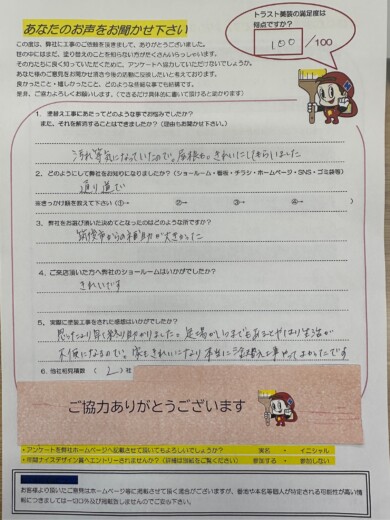 あなたのお声をお聞かせ下さい
トラスト美装の満足度は
何点ですか?
100 /100
この度は、弊社に工事のご依頼を頂きまして、ありがとうございました。
世の中にはまだ、塗り替えのことを知らない方がたくさんいらっしゃいます。
そのためにアンケートへ協力していただけないでしょうか。
あなた様のご意見をお聞かせ頂き今後の活動に反映したいと考えております。
良かったこと・嬉しかったこと、どのような些細な事でも結構です。
是非、ご協力よろしくお願いします。(できるだけ具体的に書いて頂けると助かります)
1. 塗替え工事にあたってどのような事でお悩みでしたか?
また、それを解消することはできましたか?(理由もお聞かせ下さい。)
汚れ等気になっていたので。屋根も。きれいにしてもらいました
2. どのようにして弊社をお知りになりましたか?(ショールーム・看板・チラシ・ホームページ・SNS・ゴミ袋等)
通り道で
※きっかけ順を教えて下さい(①→ ②→ ③→ ④→ )
3. 弊社をお選び頂いた決めてとなったのはどのような所ですか?
筑後市からの補助が大きかった
4. ご来店頂いた方へ弊社のショールームはいかがでしたか?
きれいです
5. 実際に塗装工事をされた感想はいかがでしたか?
思ったより早く終り助かりました。足場がいつまでもあるとやはり生活が
不便になるので。家もきれいになり本当に塗替え工事やってよかったです
6. 他社相見積数 ( 2 ) 社
ご協力ありがとうございます
・アンケートを弊社ホームページへ記載させて頂いてもよろしいでしょうか? 実名 ・ イニシャル
・年間ナイスデザイン賞へエントリーされませんか?(詳細は別紙をご覧ください) 参加する ・ 参加しない
お客様より頂いたご意見はホームページ等に掲載させて頂く場合がございますが、番地や本名等個人が特定される可能性が高い情
報につきましては一切公表及び掲載致しませんのでご安心下さい。